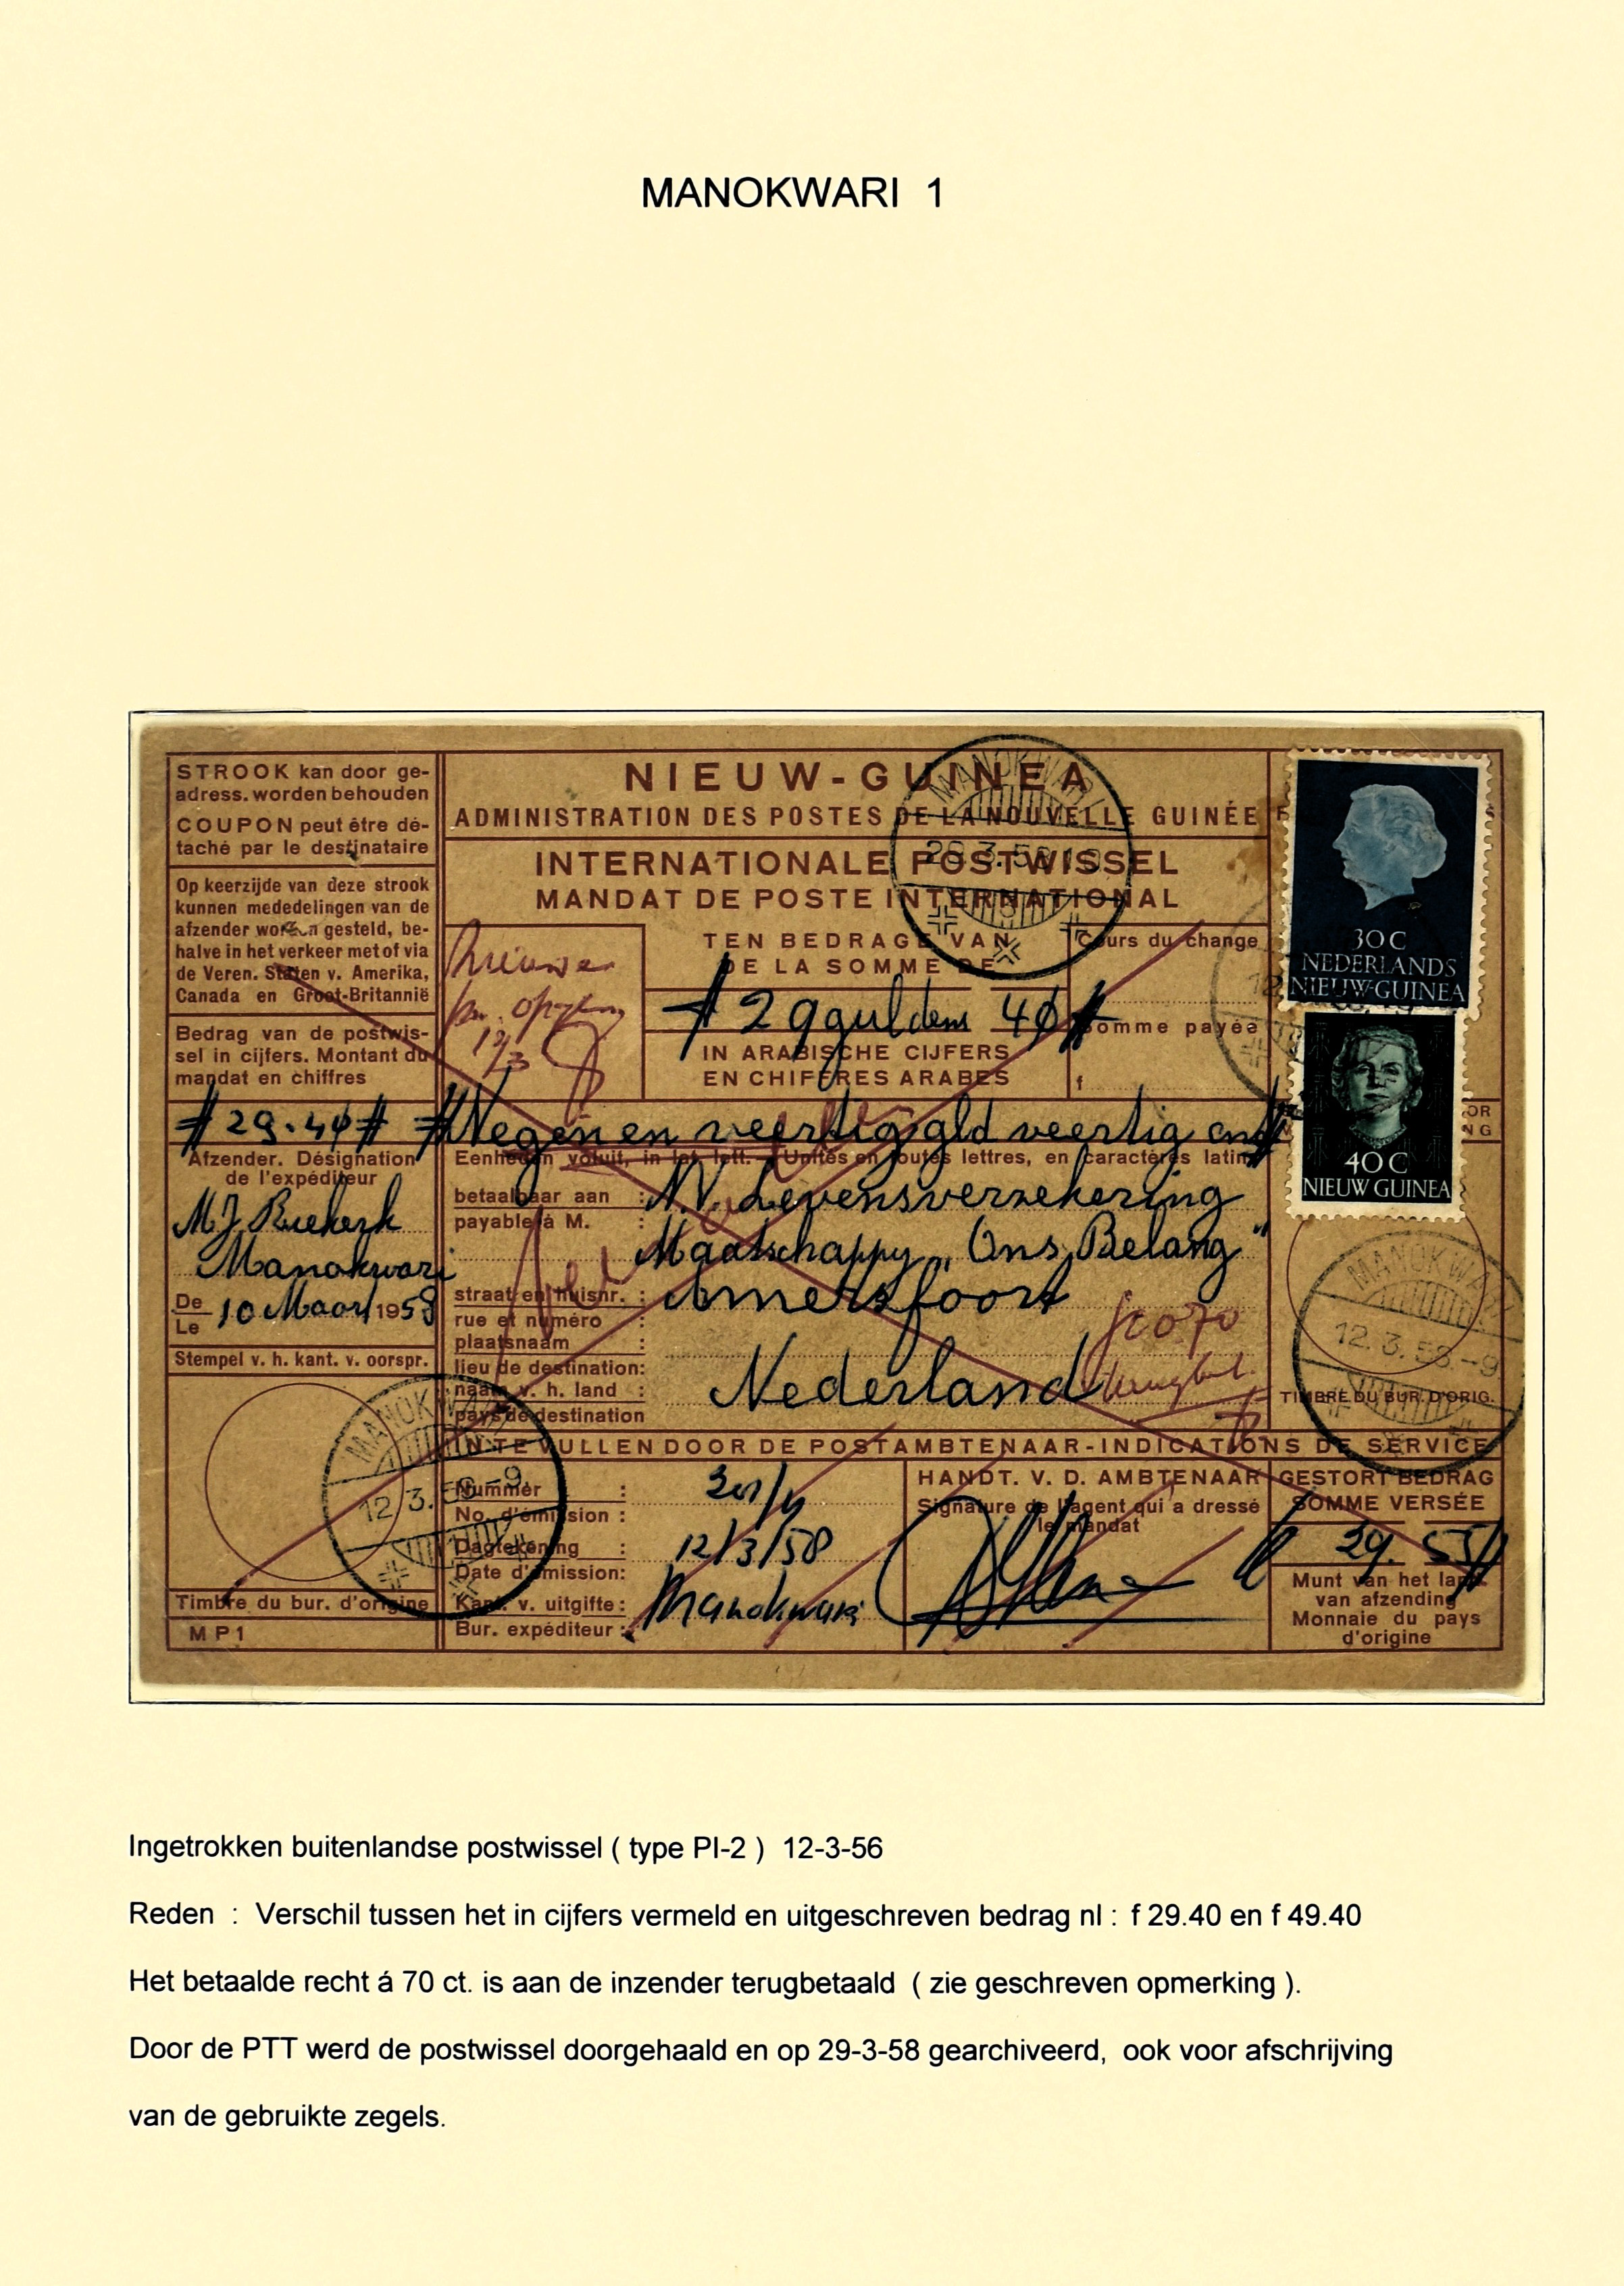 MANOKWARI 1
STROOK kan door ge-
adress. worden behouden
COUPON peut être dé-
taché par le destinataire
Op keerzijde van deze strook
kunnen mededelingen van de
afzender worden gesteld, be-
halve in het verkeer met of via
de Veren. Staten v. Amerika,
Canada en Groot-Britannië
Bedrag van de postwis-
sel in cijfers. Montant du
mandat en chiffres
# 29.40 #
Afzender. Désignation
de l'expéditeur
M.J.
Manokwari
De
Le
10 Maart 1958
Stempel v. h. kant. v. oorspr.
MANOKWARI
12.3.58.-9
Timbre du bur. d'origine
MP1
NIEUW-GUINEA
ADMINISTRATION DES POSTES DE LA NOUVELLE GUINÉE
INTERNATIONALE POSTWISSEL
MANDAT DE POSTE INTERNATIONAL
MANOKWARI
Nieuwe
12/3
TEN BEDRAGE VAN
DE LA SOMME DE
# 29 gulden 40 #
IN ARABISCHE CIJFERS
EN CHIFFRES ARABES
Cours du change
Somme payée
f
# Negen en veertig gld veertig cnt #
Eenheden voluit, in lat. lett. - Unités en toutes lettres, en caractères latins
betaalbaar aan :
payable à M. :
N.V. Levensverzekering
Maatschappij „Ons Belang"
straat en huisnr. :
rue et numéro :
Amersfoort
plaatsnaam :
lieu de destination:
naam v. h. land :
pays de destination
Nederland
f 0070
terugbet.
30 C
NEDERLANDS
NIEUW-GUINEA
40 C
NIEUW GUINEA
MANOKWARI
12.3.58.-9
TIMBRE DU BUR. D'ORIG.
IN TE VULLEN DOOR DE POSTAMBTENAAR-INDICATIONS DE SERVICE
Nummer :
No. d'émission :
Dagtekening :
Date d'émission:
12/3/58
Kant. v. uitgifte :
Bur. expéditeur :
Manokwari
HANDT. V. D. AMBTENAAR
Signature de l'agent qui a dressé
le mandat
GESTORT BEDRAG
SOMME VERSÉE
Munt van het land
van afzending
Monnaie du pays
d'origine
Ingetrokken buitenlandse postwissel ( type PI-2 ) 12-3-56
Reden : Verschil tussen het in cijfers vermeld en uitgeschreven bedrag nl : f 29.40 en f 49.40
Het betaalde recht á 70 ct. is aan de inzender terugbetaald ( zie geschreven opmerking ).
Door de PTT werd de postwissel doorgehaald en op 29-3-58 gearchiveerd, ook voor afschrijving
van de gebruikte zegels.